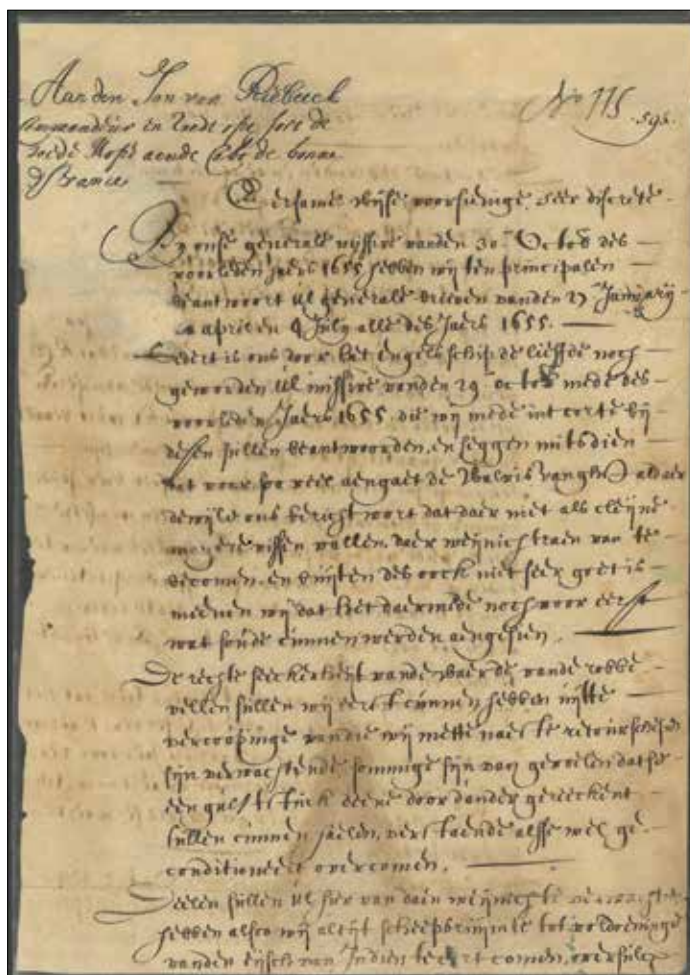 Aan den Jan van Riebeeck
Commandeur en Raedt opt fort de
Goede Hope aende Cabo de bonne
Esperance
No 115
595.
Eersame, wijse, voorsienige, seer discrete
By onse generale missive vanden 30en Octob des
voorleden jaers 1655 hebben wij ten principalen
beantwoort Ul generale brieven vanden
april en July alle des jaers 1655.
Sedert is ons door het engels schip de lieffde noch
geworden Ul missive vanden 29 octob mede des
voorleden jaers 1655. die wij mede int corte bij
desen sullen beantwoorden, en seggen mitsdien
dat voor so veel aengaet de Walvis vanghst aldaer
dewijle ons bericht wort dat daer niet als cleijne
magere vissen vallen, daer weijnich traen van te
becomen, en buijten des oock niet seer goet is
meenen wij dat het daermede noch voor eerst
wat soude cunnen werden aengesien.
De rechte seeckerheijt vande waerde vande robbe
vellen sullen wij eerst cunnen hebben uijtte
vercoopinge van die wij mette naeste retourschepen
sijn verwachtende, sommige sijn van gevoelen datse
een gulst stuck deene door dander gereeckent
sullen cunnen haelen, verstaende alsse wel ge-
conditioneert overcomen.
sullen Ul hier van daen weijnich te verwachten
hebben alsoo wij altijt scheepsruijmte tot voldoeninge
vanden eijsch van Indien te cort comen,